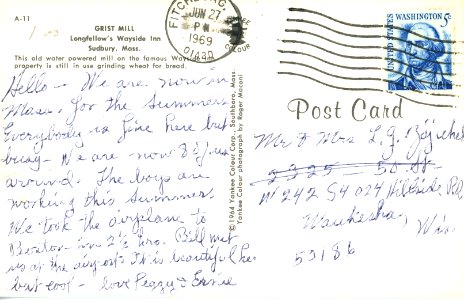 A-11
GRIST MILL
Longfellow's Wayside Inn
Sudbury, Mass.
This old water powered mill on the famous Wayside
property is still in use grinding wheat for bread.
Hello - We are now in
Mass. for the summer.
Everybody is fine here but
busy - We are now
around. The boys are
working this summer
We took the airplane to
Boston - in 2½ hrs. Bill met
us at the airport. It is beautiful here
but cool - love Peggy & Ernie
© 1964 Yankee Colour Corp., Southboro, Mass.
Yankee Colour photograph by Roger Maconi
FITCHBURG,
JUN 27
PM
1969
01420
COLOUR
UNITED STATES
WASHINGTON 5c
Post Card
Mr & Mrs L. G.
2325 50 St
W 242 S4024 Hillside Rd.
Waukesha,
Wis.
53186